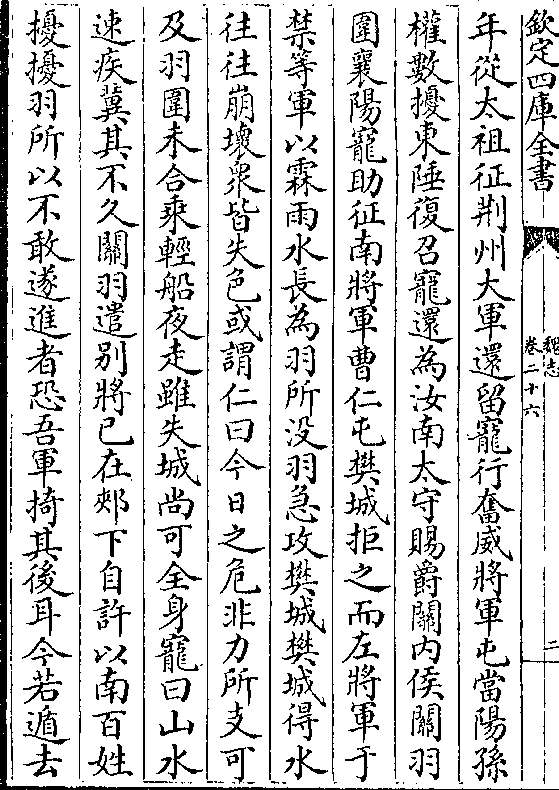 欽定四庫全書
魏志
卷二十六
二
年從太祖征荆州大軍還留寵行奮威將軍屯當陽孫
權數擾東陲復召寵還為汝南太守賜爵關内侯關羽
圍襄陽寵助征南將軍曹仁屯樊城拒之而左將軍于
禁等軍以霖雨水長為羽所没羽急攻樊城樊城得水
往往崩壞衆皆失色或謂仁曰今日之危非力所支可
及羽圍未合乘輕船夜走雖失城尚可全身寵曰山水
速疾冀其不久關羽遣别將已在郟下自許以南百姓
擾擾羽所以不敢遂進者恐吾軍掎其後耳今若遁去